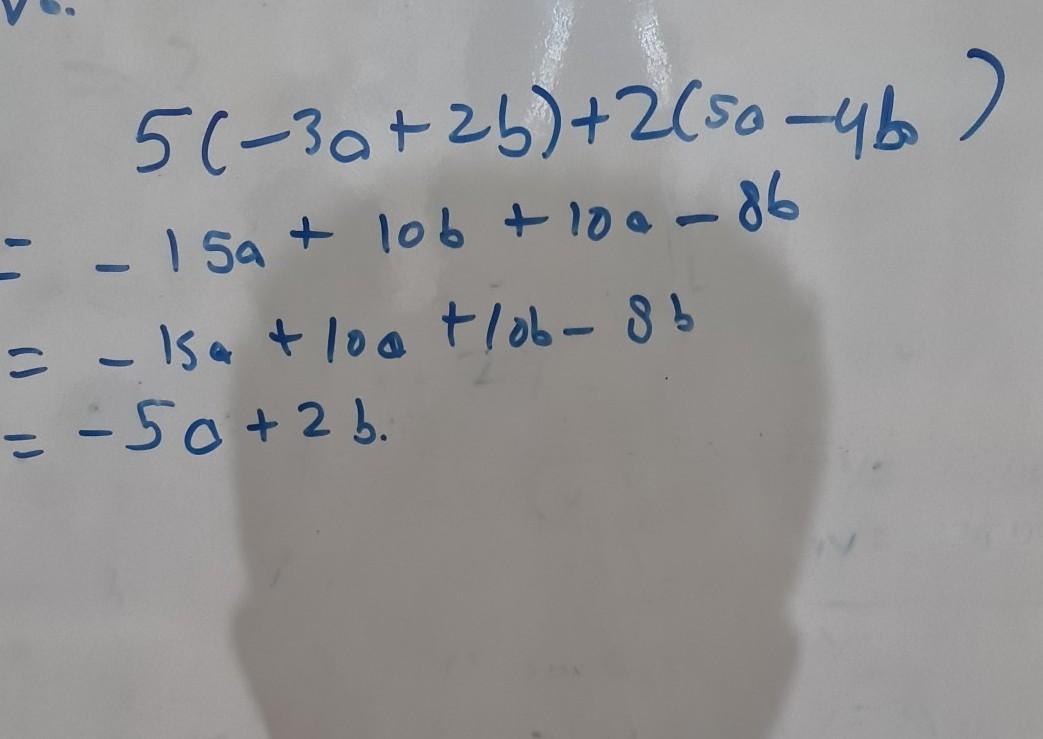 5(-3a+2b)+2(5a-4b)
= -15a + 10b + 10a - 8b
= -15a + 10a + 10b - 8b
= -5a + 2b.